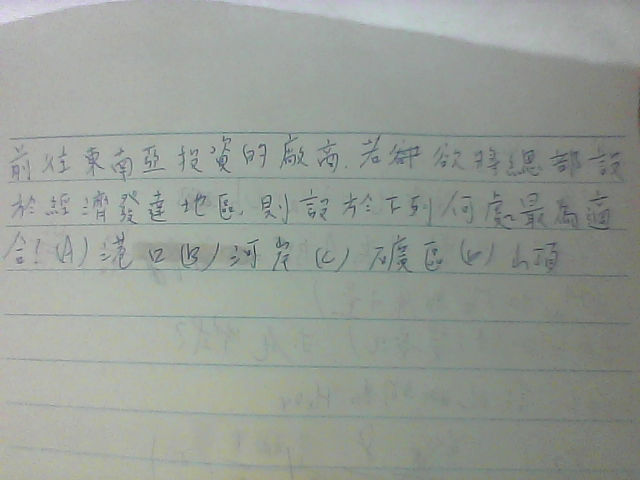 前往東南亞投資的廠商,若欲將總部設
於經濟發達地區,則設於下列何處最為適
合!(A)港口(B)河岸(C)礦區(D)山頂